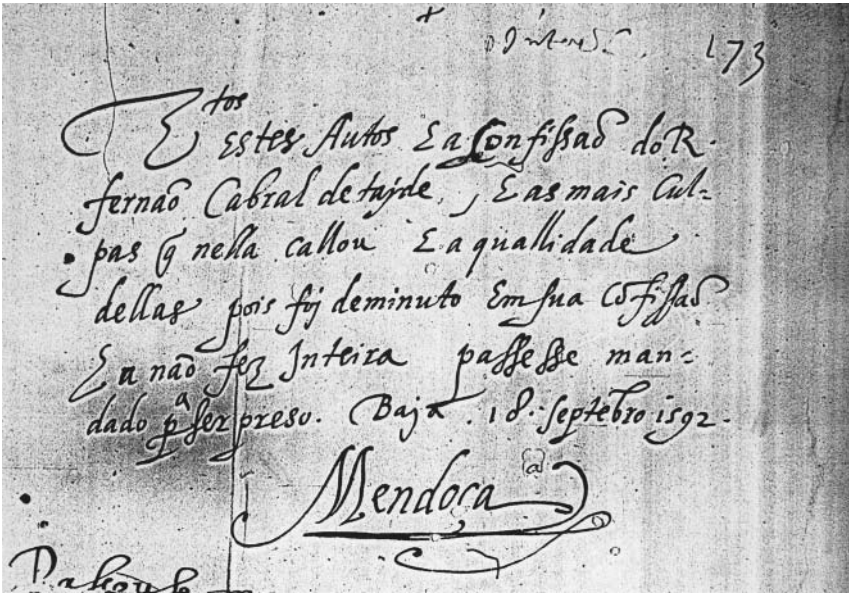 173
tos
Estes Autos E a Confissaõ do R.
fernaõ Cabral de tajde, E as mais Cul-
pas q̃ nella callou E a quallidade
dellas pois foj deminuto Em sua Cõfissaõ
E a não fez Inteira passesse man-
dado p.ª ser preso. Baja. 18. septẽbro 1592.
Mendoça